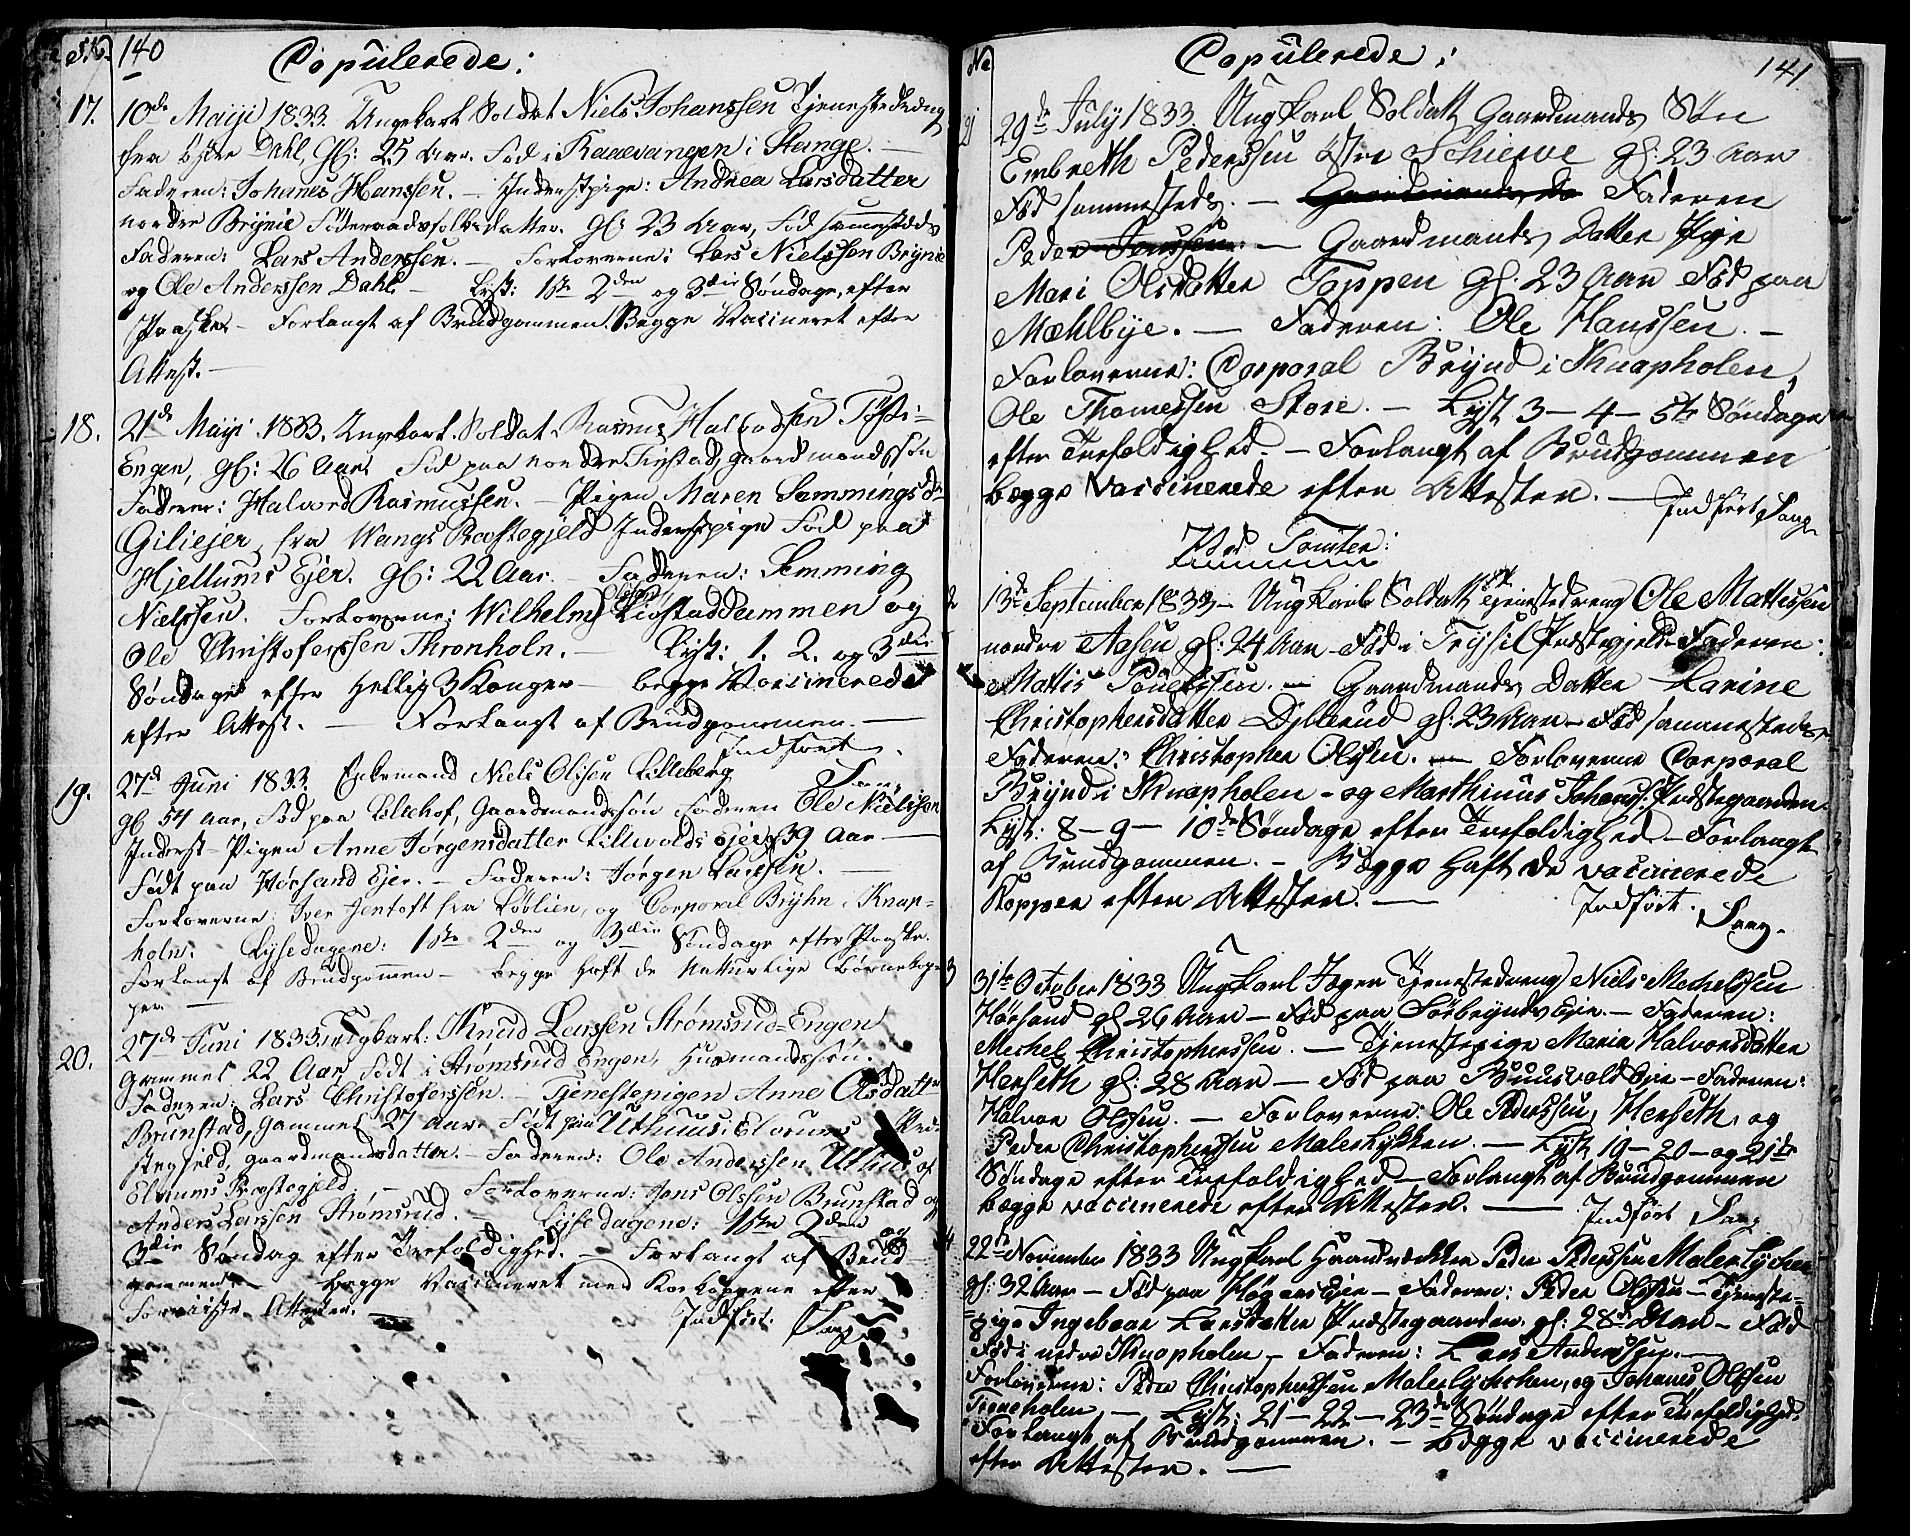 No 140
Copulerede:
17. 10de Maiji 1833. Ungekarl Soldat Niels Johanssen Tjenestedreng
fra Østre Dahl, gl: 25 Aar. Fød i Kaaevangen i Stange. —
Faderen: Johanes Hanssen. — Inderstpige: Andrea Larsdatter
nordre Brynie Føderaadsfolks datter. gl: 23 Aar, Fød sammesteds
Faderen: Lars Anderssen. — Forloverne: Lars Nielssen Brynie
og Ole Anderssen Dahl — Lyst: 1ste 2den og 3die Søndage, efter
Paaske — Forlangt af Brudgommen. Begge Vacineret efter
Attest. —
18. 21de Maiji 1833. Ungekarl Soldat Rasmus Halvorssen
Engen, gl: 26 Aar, Fød paa nordre Gaardmandssøn
Faderen: Halvord Rasmussen. — Pigen Maren Semmingsdr
Giliejer, fra Wangs Præstegjeld Inderstpige Fød paa
Hjellums Ejer. gl: 22 Aar. — Faderen: Semming
Nielssen. Forloverne: Wilhelm Olssen Livstaddammen og
Ole Christoferssen Thronholn. — Lyst: 1. 2. og 3die
Søndage efter Hellig 3 Konger — begge Vacinerede
efter Attest. — Forlangt af Brudgommen. —
Indført.
19. 27de Juni 1833. Enkemand Niels Olssen Lilleberg
gl, 54 Aar, Fød paa Lillehof, Gaardmandssøn Faderen Ole Nielssen
Inderst-Pigen Anne Jørgensdatter Lillevolds Ejer 39 Aar —
Født paa Hørsand Ejer. — Faderen: Jørgen Larssen. —
Forloverne: Iver Jentoft fra Løvlien, og Corporal Bryhn i Knap-
holn: Lysedagene: 1ste 2den og 3die Søndage efter Paaske.
Forlangt af Brudgommen — begge Haft de Naturlige Børnekop-
per. —
20. 27de Juni 1833. Ungkarl: Knud Larssen Strømsrud-Engen
Gammel 22 Aar, Født i Strømsrud Engen, Husmandssøn.
Faderen: Lars Christoferssen. — Tjenestepigen Anne Olsdattr
Brunstad, Gammel 27 Aar. Født paa Uthuus: Elverums Præ-
stegjeld, Gaardmandsdatter. — Faderen: Ole Anderssen Uthuus af
Elverums Præstegjeld. — Forloverne: Jens Olssen Brunstad og
Anders Larssen Strømsrud. — Lysedagene: 1ste 2den og
3die Søndag efter Trefoldighed. — Forlangt af Brud-
gommen — begge Vacineret med Kokopperne efter
Foreviiste Attester. —
Indført.
No Copulerede: 141.
21 29de July 1833. Ungkarl Soldatt Gaardmands Søn
Embreth Pederssen østre Schierve gl: 23 Aar
Fød sammesteds. — Faderen
Peder Jenssen: — Gaardmands Datter Pige
Mari Olsdatter Toppen gl: 23 Aar Fød paa
Mæhlbye. — Faderen: Ole Hanssen. —
Forloverne: Corporal Brynd i Knapholen,
Ole Thomessen Store. — Lyst 3 — 4 — 5te Søndage
efter Trefoldighed. — Forlangt af Brudgommen
begge Vaccinerede efter Attester. —
Indført Sang
Ved Tomter:
13de September 1833 — Ungkarl Soldatt Tjenestedreng Ole Mattissen
nordre Aasen gl: 24 Aar — Fød i Trysil Præstegjeld Faderen:
Mattis Pouelssen. — Gaardmands Datter Karine
Christophersdatter Dyllerud gl: 23 Aar — Fød sammesteds
Faderen: Christopher Olssen. — Forloverne Corporal
Brynd i Knapholen — og Marthinus Johans: Præstegaarden.
Lyst: 8 — 9 — 10de Søndage efter Trefoldighed — Forlangt
af Brudgommen. — Begge haft de vaccinerede
Kopper efter Attester. — Indført.
Sang.
3 31te October 1833 Ungkarl Tjenestedreng Niels Mechelssen
Hørsand gl: 26 Aar — Fød paa Sørbrynds Eie. — Faderen:
Mechel Christopherssen. — Tjenestepige Maria Halvorsdatter
Herseth gl: 28 Aar — Fød paa Buusvold Eie — Faderen:
Halvor Olssen. — Forloverne: Ole Pederssen, Herseth, og
Peder Christopherssen Malerlykken. — Lyst 19 — 20 — og 21de
Søndage efter Trefoldighed — Forlangt af Brudgommen
begge vaccinerede efter Attester. — Indført Sang
4 22de November 1833 Ungkarl Haandværker Peder Pederssen Malerlychen
gl: 32 Aar — Fød paa Eie — Faderen: Peder Olssen — Tjeneste-
pige Ingebaar Larsdatter Præstegaarden. gl: 28 Aar — Fød
Fød i nedre Knapholen — Faderen: Lars Anderssen. —
Forloverne: Peder Christopherssen Malerlychchen, og Johanes Olssen
Troneholen. — Lyst: 21 — 22 — 23de Søndage efter Trefoldighed.
Forlangt af Brudgommen. — Begge vaccinerede
efter Attester. —